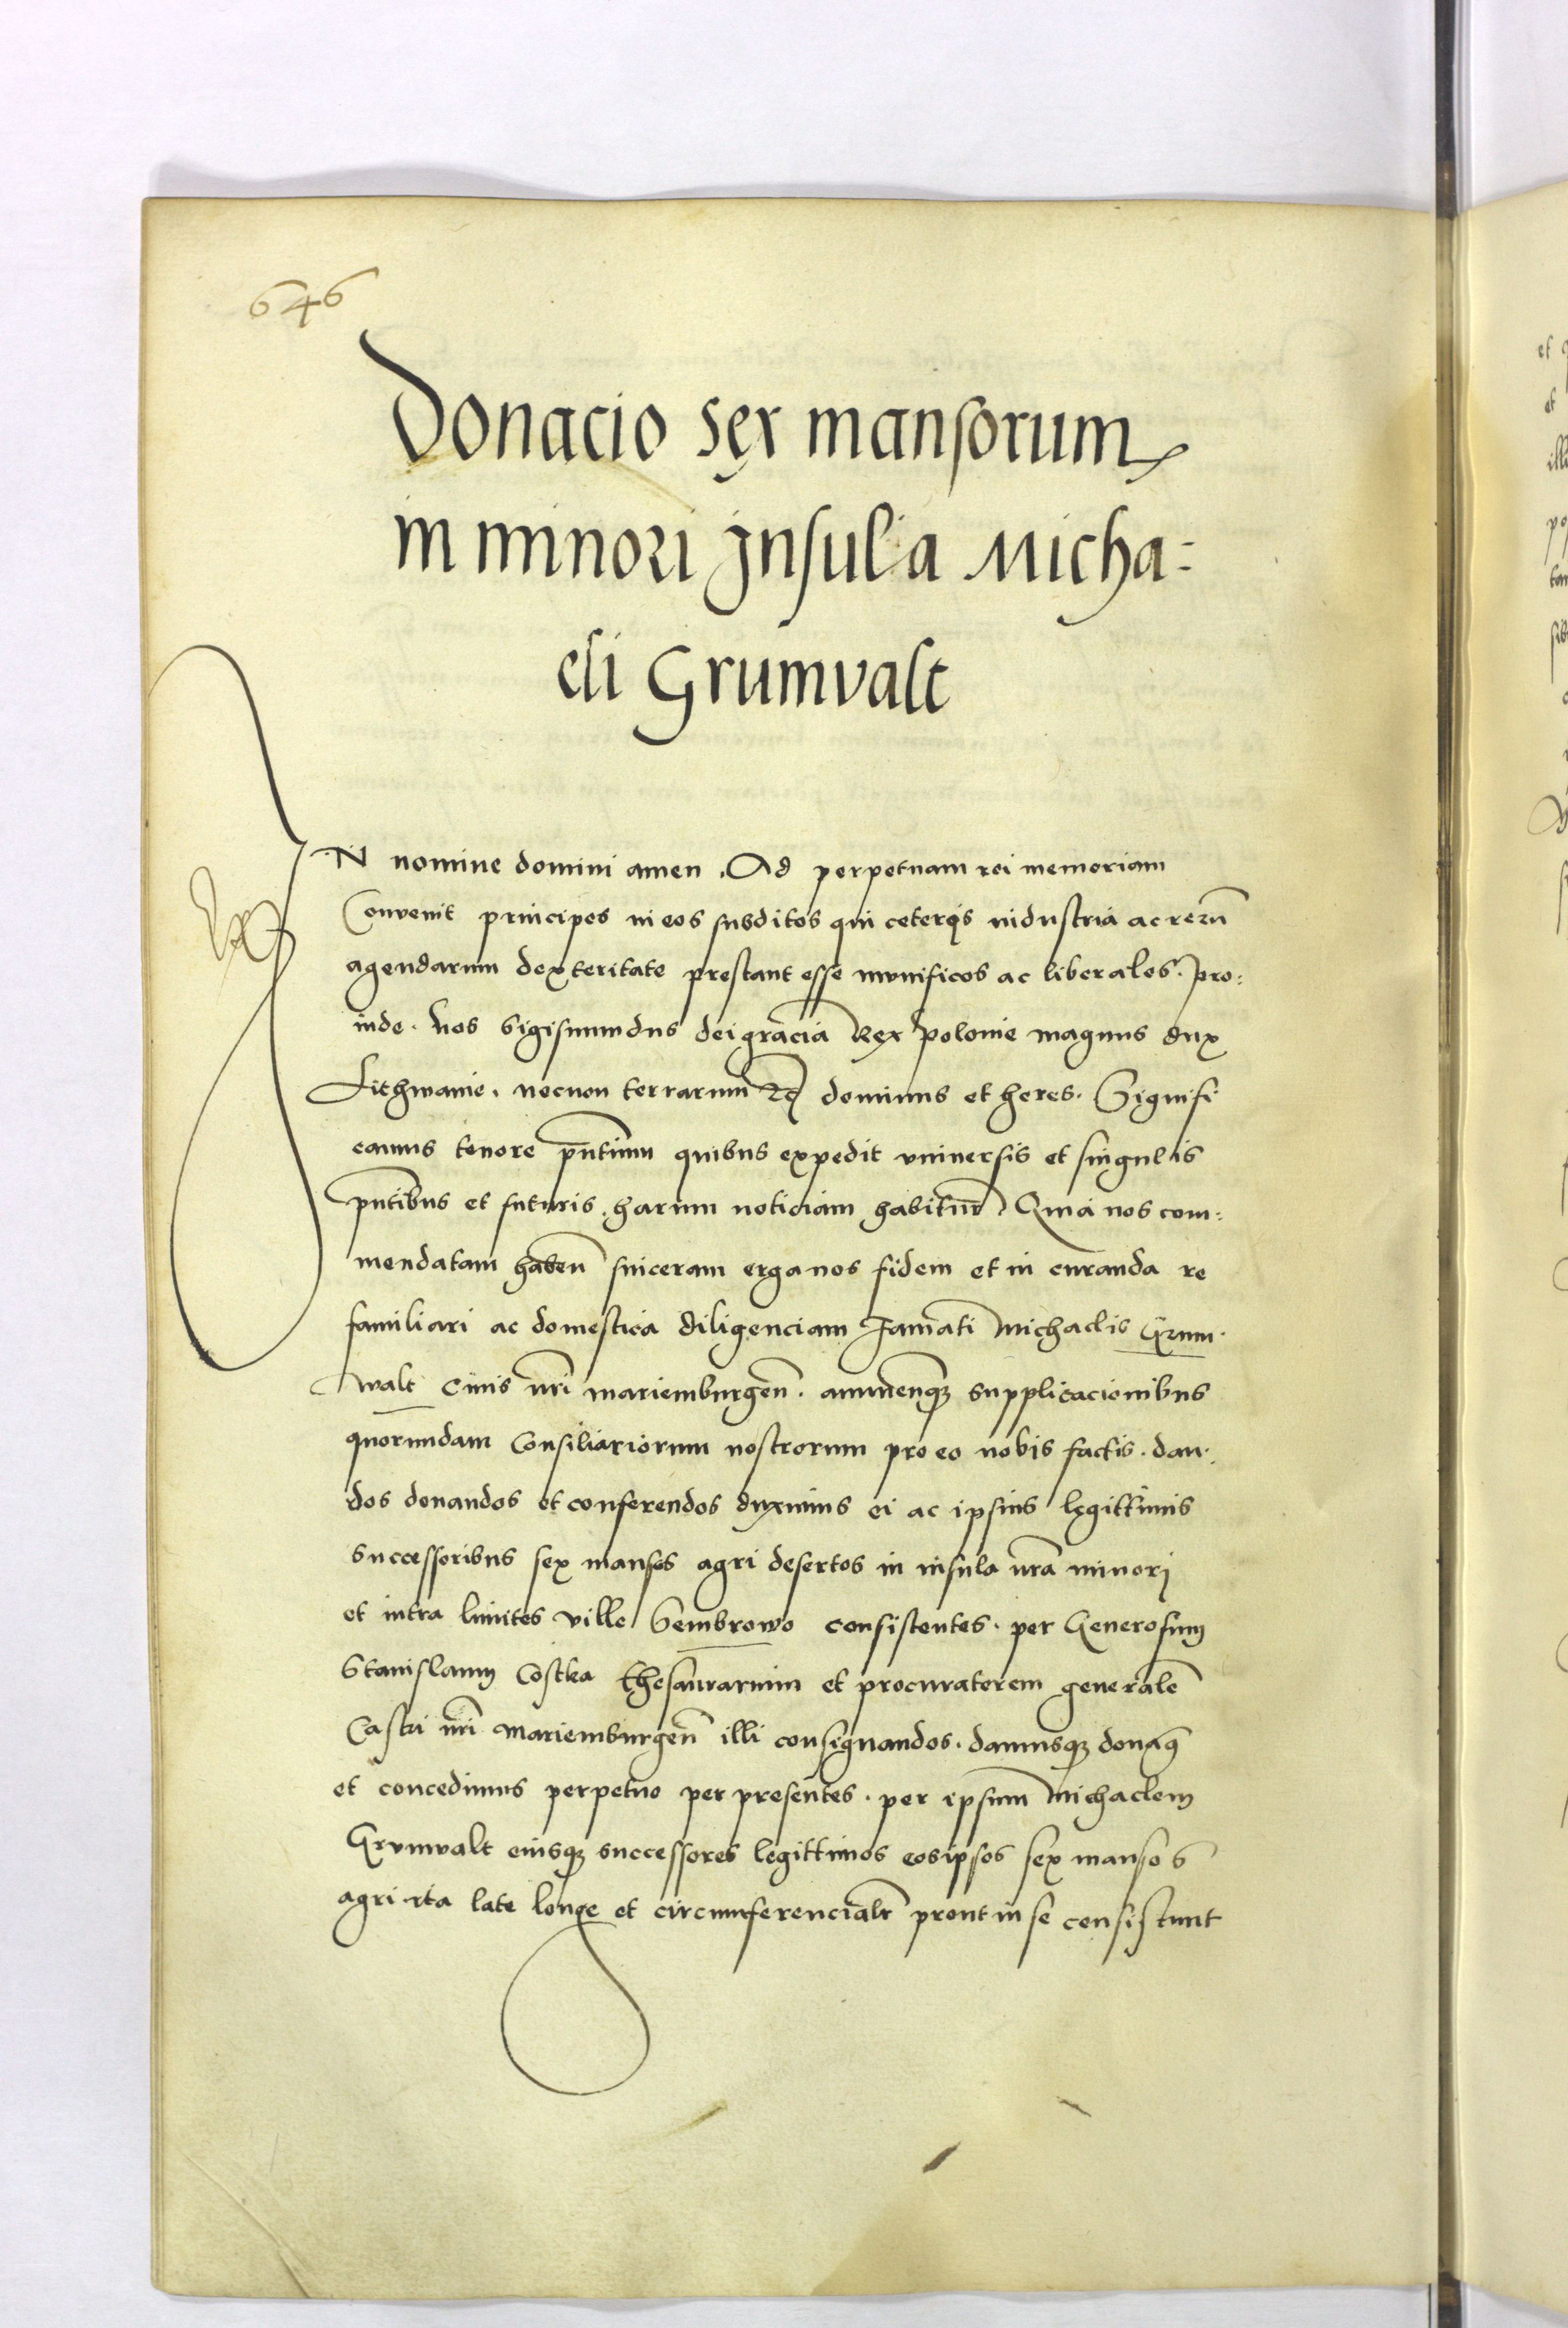 646
Donacio sex mansorum
in minori Insula Micha=
eli Grumvalt
IN nomine domini amen. Ad perpetuam rei memoriam
Convenit principes in eos subditos qui ceteris industria ac rerū
agendarum dexteritate prestant esse munificos ac liberales. Pro:
inde. Nos Sigismundus dei gracia Rex Polonie magnus dux
Lithwanie. necnon terrarum etc dominus et heres. Signifi
camus tenore pn̄tium quibus expedit universis et singulis
pn̄tibus et futuris. harum noticiam habitur̄ Quia nos com:
mendatam haben̄ sinceram erga nos fidem et in curanda re
familiari ac domestica diligenciam famati Michaelis Grum.
walt Civis nr̄i mariemburgen̄. annuen̄q supplicacionibus
quorundam Consiliariorum nostrorum pro eo nobis factis. dan.
dos donandos et conferendos duximus ei ac ipsius legittimis
successoribus sex mansos agri desertos in insula nr̄a minori
et intra limites ville Sembrowo consistentes. per Generosum
Stanislaum Costka thesaurarium et procuratorem generalē
Castri nr̄i Mariemburgen̄ illi consignandos. damusq donaq
et concedimus perpetuo per presentes. per ipsum Michaelem
Grumvalt eiusq successores legittimos eosipsos sex mansos
agri ita late longe et circumferencialr̄ prout in se consistunt